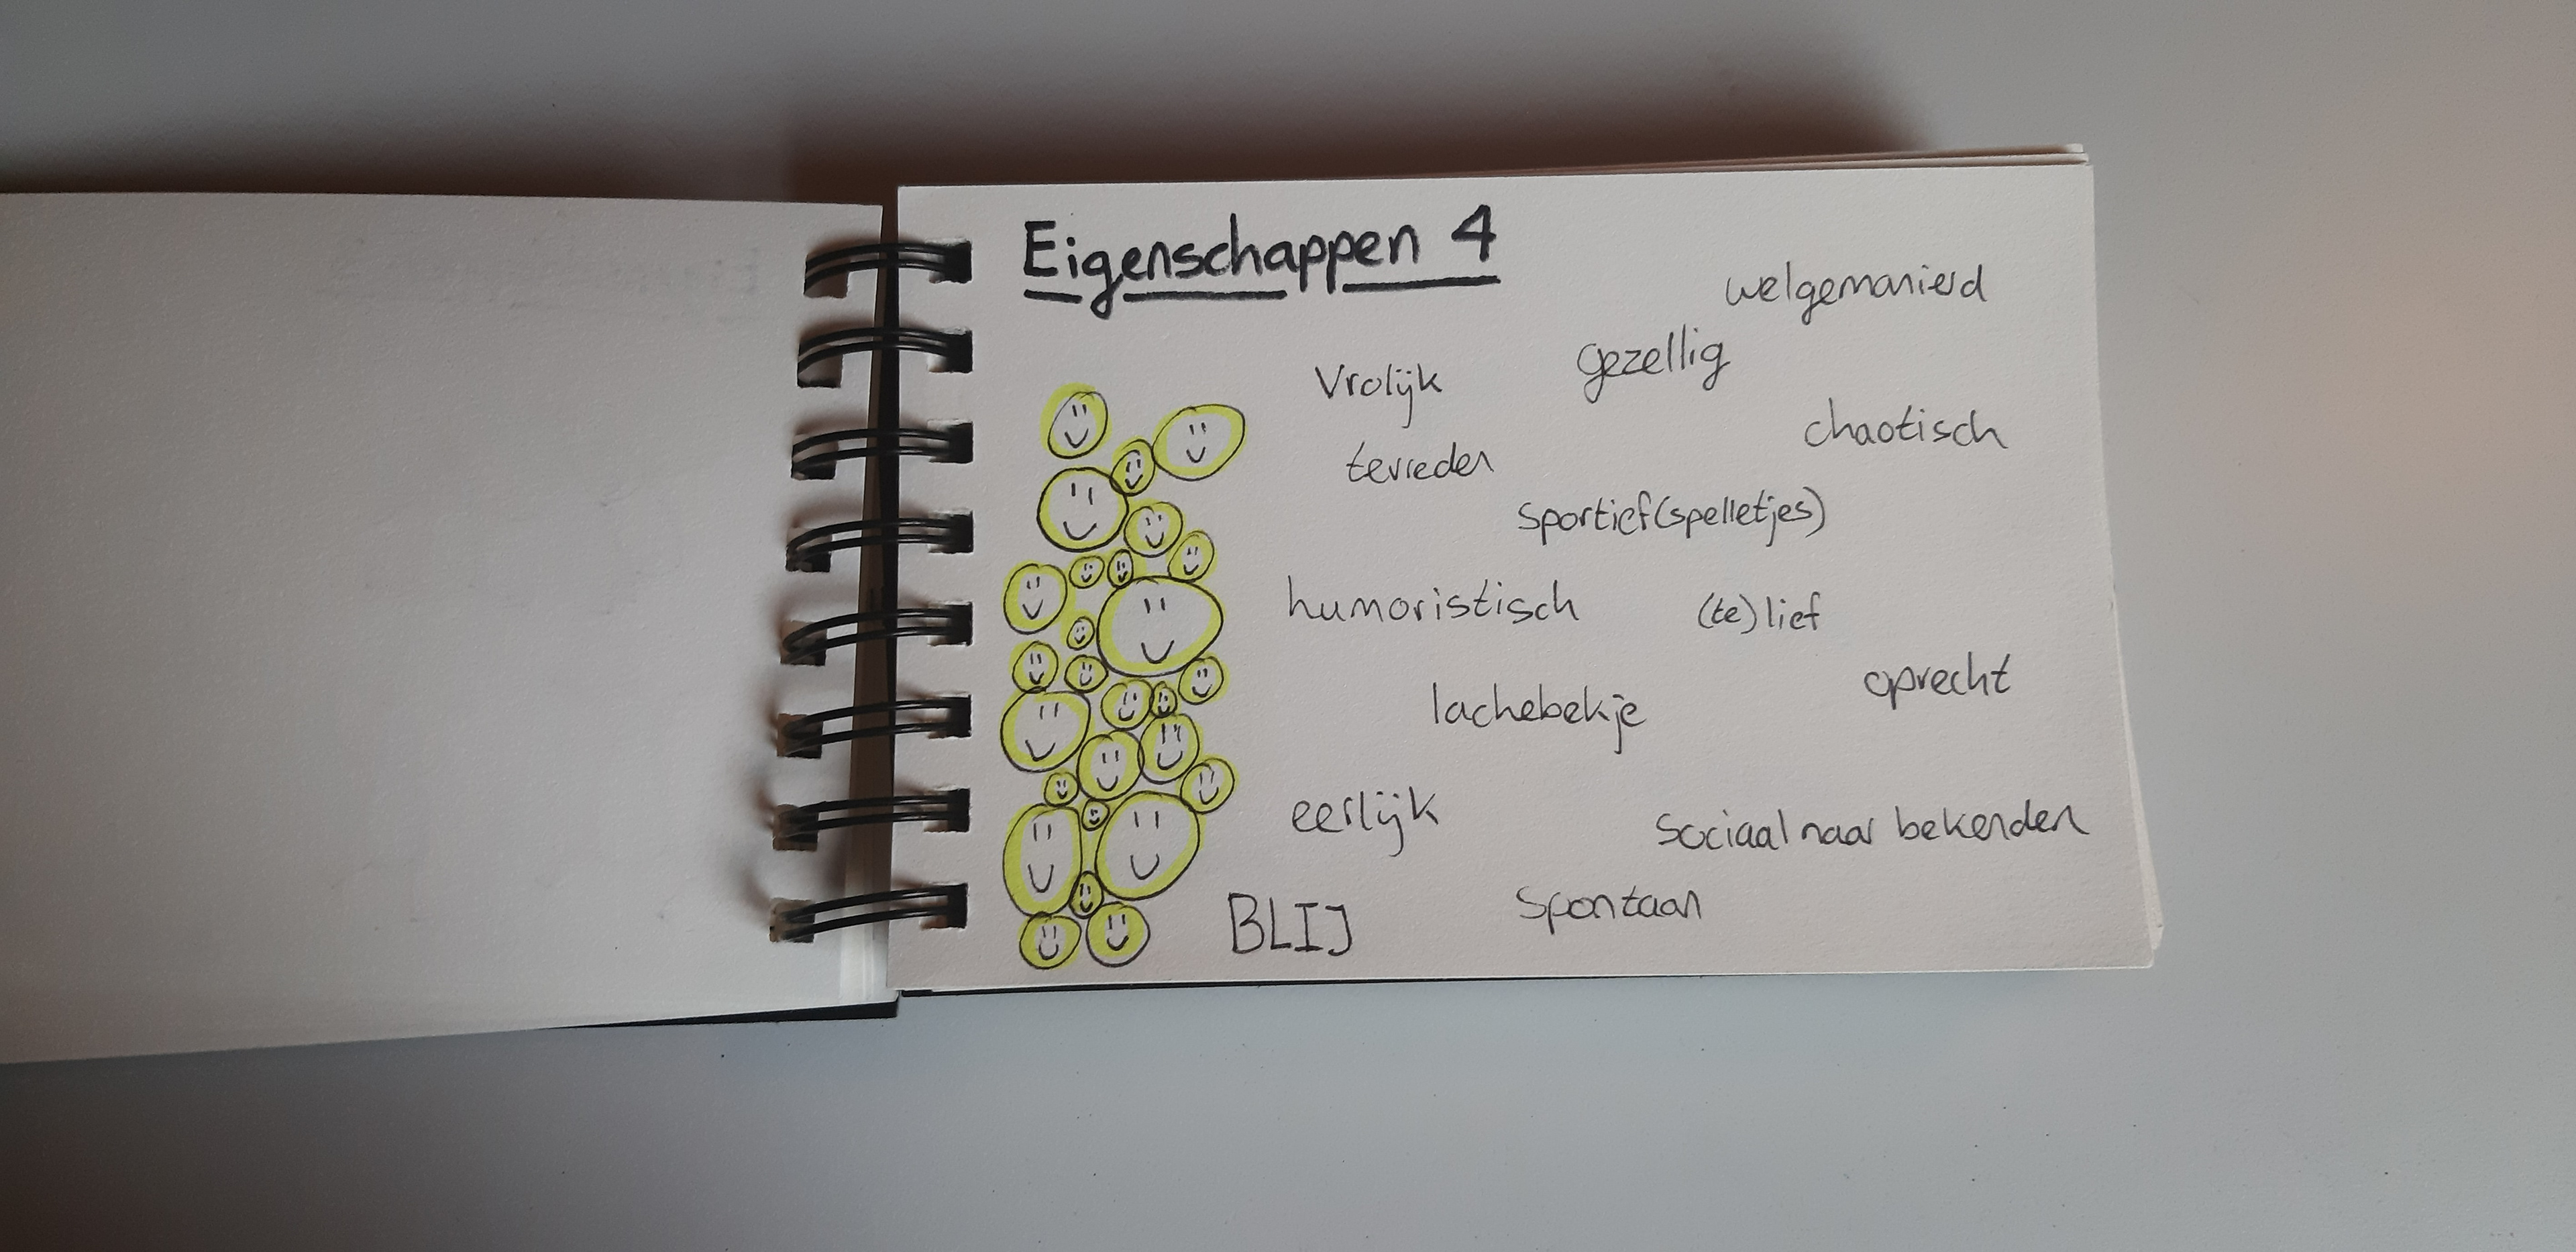 Eigenschappen 4
welgemanierd
gezellig
Vrolijk
chaotisch
tevreden
Sportief(spelletjes)
humoristisch
(te) lief
oprecht
lachebekje
eerlijk
Sociaal naar bekenden
Spontaan
BLIJ